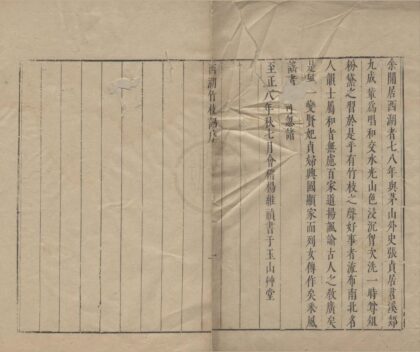 余閒居西湖者七八年與茅山外史張貞居苕溪郯
九成輩爲唱和交水光山色浸沉胷次洗一時尊俎
粉黛之習於是乎有竹枝之聲好事者流布南北名
人韻士屬和者無慮百家道揚諷諭古人之敎廣矣
是風一變賢妃貞婦興國顯家而列女傳作矣采風
謠者 可忽諸
至正八年秋七月會稽楊維禎書于玉山艸堂
西湖竹枝詞序